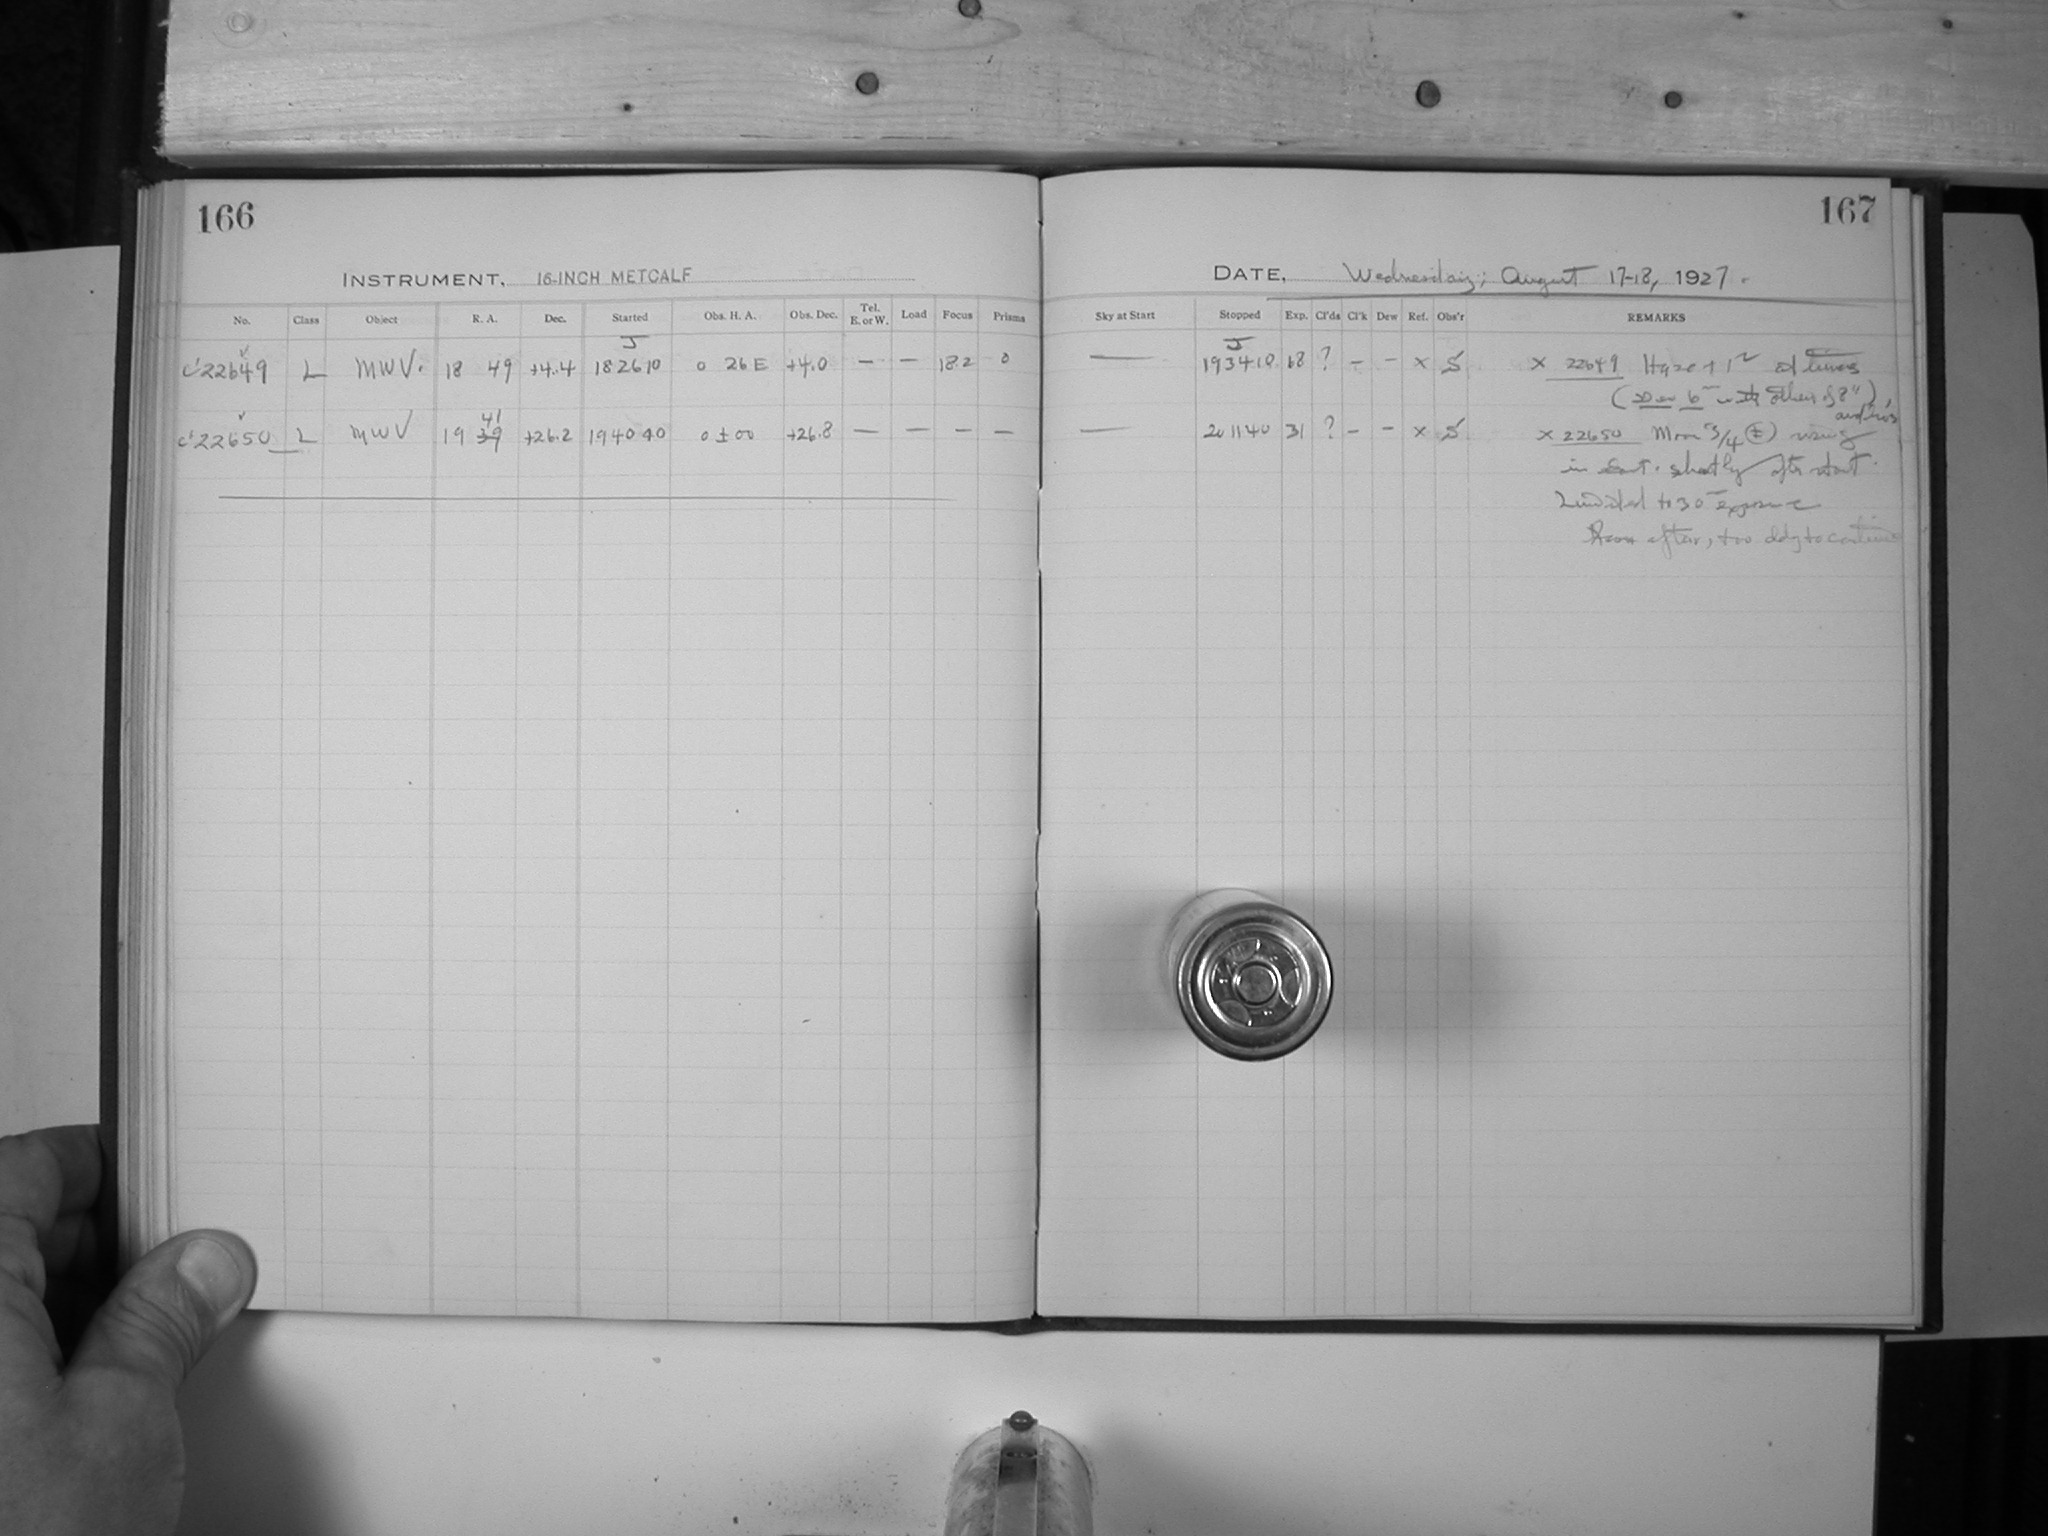 166
INSTRUMENT, 16-INCH METCALF
No. Class Object R. A. Dec. Started Obs. H. A. Obs. Dec. Tel. E. or W. Load Focus Prisms
J
c'22649 L MWV. 18 49 +4.4 182610 0 26 E +4.0 — — 18.2 0
41
c'22650 L MWV 19 39 +26.2 194040 0 ± 00 +26.8 — — — —
167
DATE, Wednesday; August 17-18, 1927.
Sky at Start Stopped Exp. Cl'ds Cl'k Dew Ref. Obs'r REMARKS
J
— 193410 68 ? – – x S x 22649 Haze + 1
( 20 or 6 with others of 8")
— 201140 31 ? – – x S x 22650 Moon 3/4 (±) rising
in East. shortly after start.
Limited to 30 exposure
after, too cldy to continue